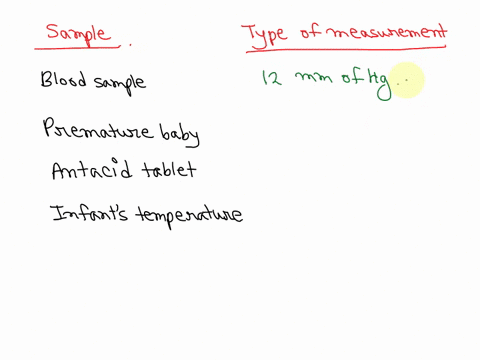 Sample . Type of measurement
Blood sample 12 mm of Hg ..
Premature baby
Antacid tablet
Infant's temperature